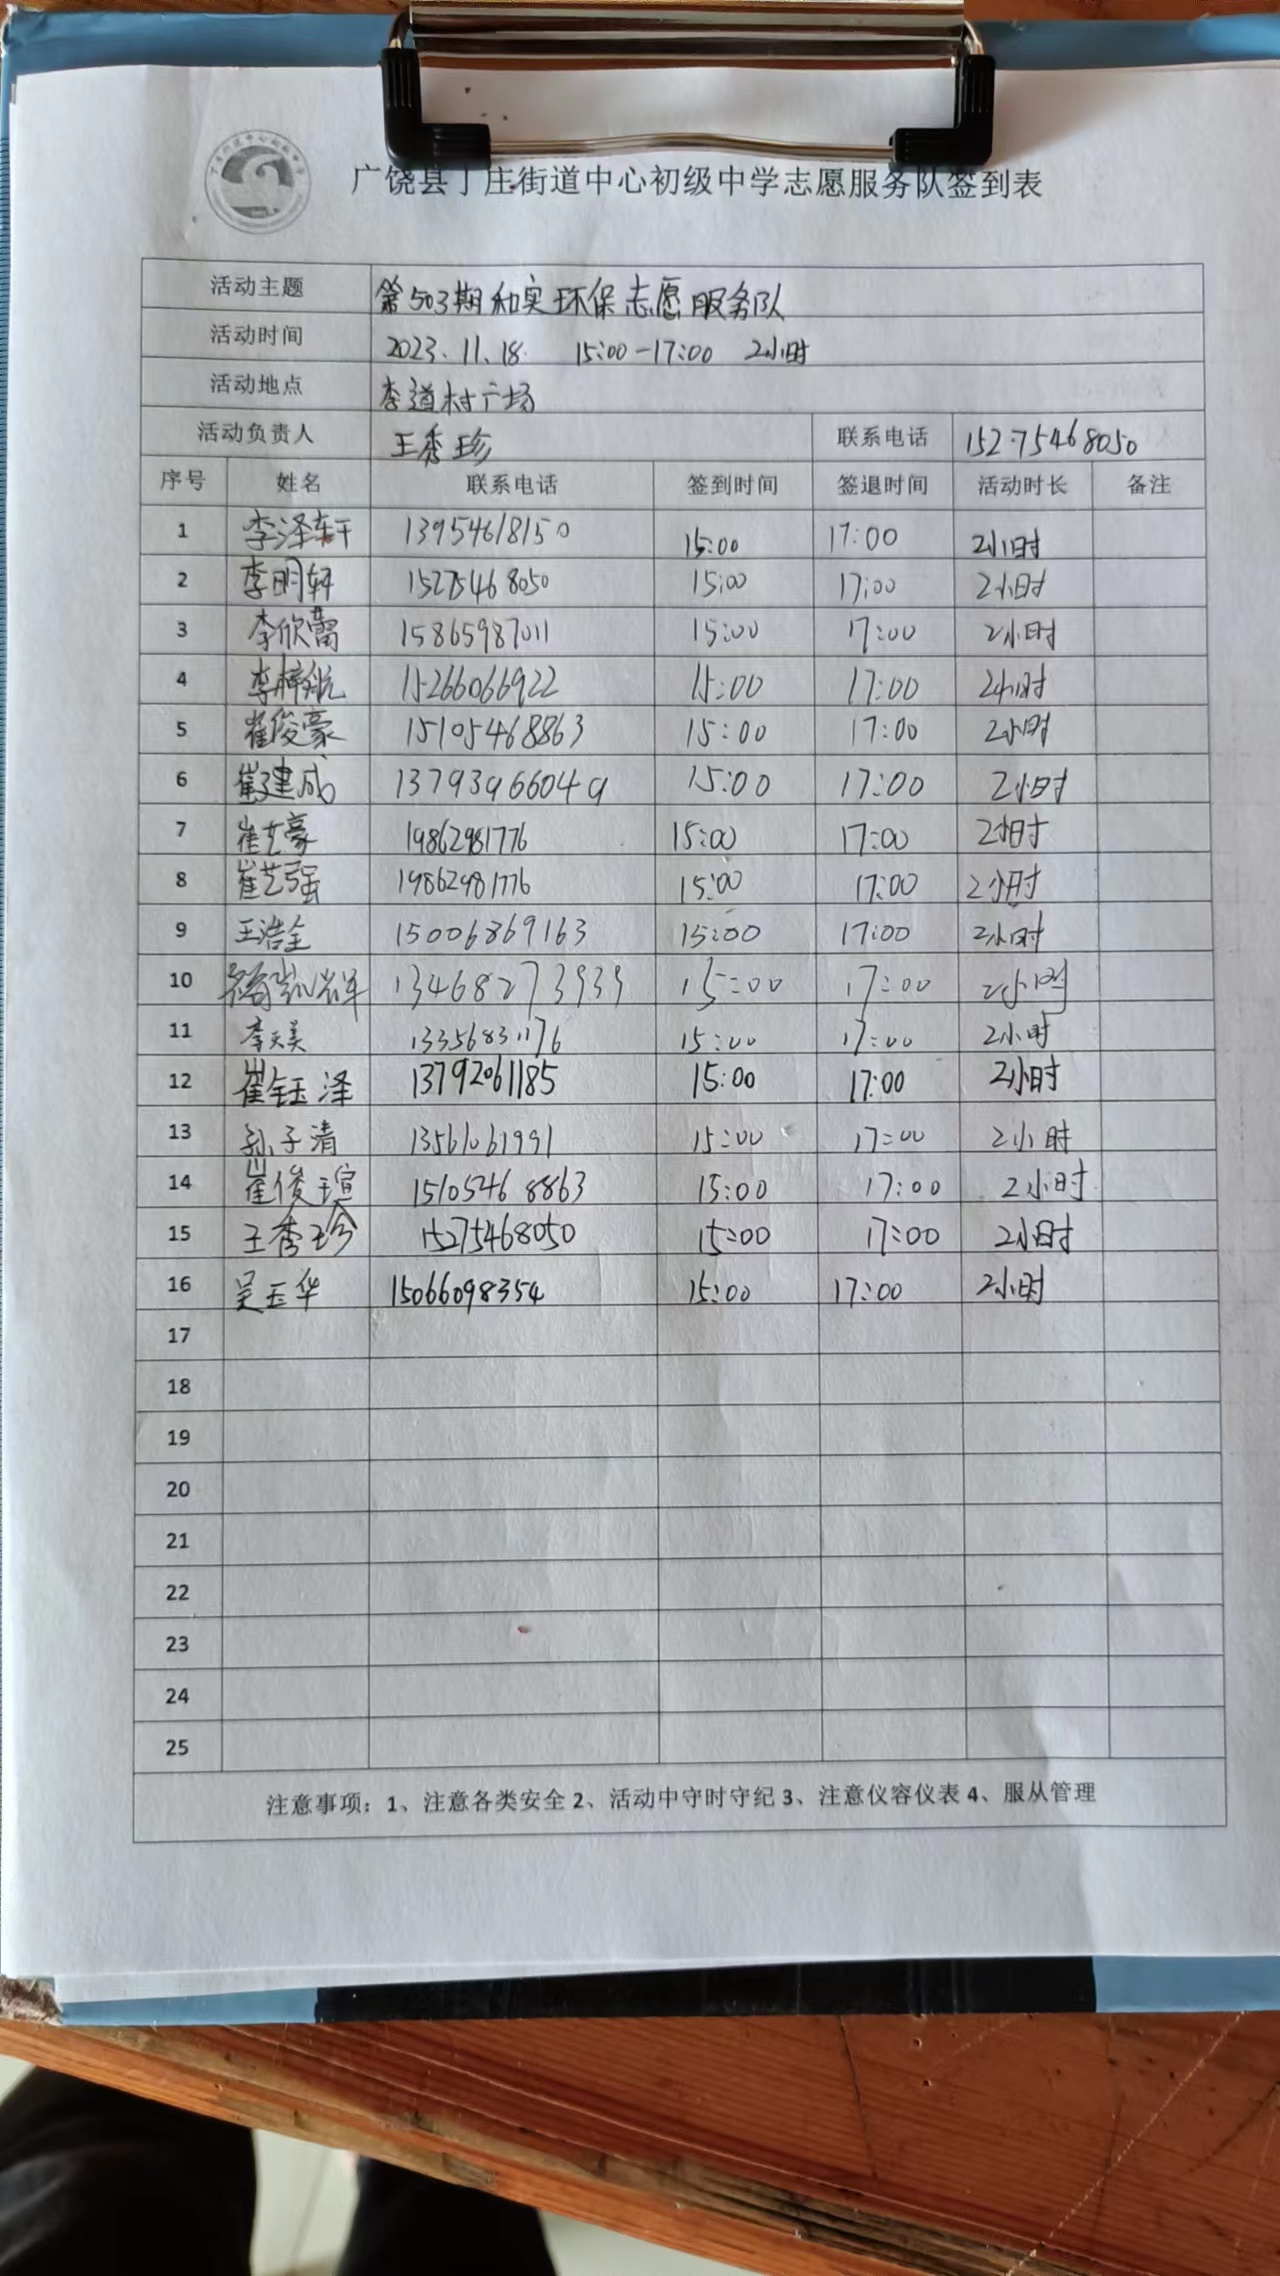 广饶县丁庄街道中心初级中学志愿服务队签到表
活动主题 第503期和实环保志愿服务队
活动时间 2023.11.18. 15:00-17:00 2小时
活动地点 李道村广场
活动负责人 王秀珍 联系电话 15275468050
序号 姓名 联系电话 签到时间 签退时间 活动时长 备注
1 李泽轩 13954618150 15:00 17:00 2小时
2 李明轩 15275468050 15:00 17:00 2小时
3 李欣蕾 15865987011 15:00 17:00 2小时
4 李梓航 15266066922 15:00 17:00 2小时
5 崔俊豪 15105468863 15:00 17:00 2小时
6 崔建成 13793966049 15:00 17:00 2小时
7 崔艺豪 19862981776 15:00 17:00 2小时
8 崔艺强 19862981776 15:00 17:00 2小时
9 王浩全 15006869163 15:00 17:00 2小时
10 13468273939 15:00 17:00 2小时
11 李天美 13356831176 15:00 17:00 2小时
12 崔钰泽 13792061185 15:00 17:00 2小时
13 孙子清 13561061991 15:00 17:00 2小时
14 崔俊瑄 15105468863 15:00 17:00 2小时
15 王秀珍 15275468050 15:00 17:00 2小时
16 吴玉华 15066098354 15:00 17:00 2小时
17
18
19
20
21
22
23
24
25
注意事项：1、注意各类安全 2、活动中守时守纪 3、注意仪容仪表 4、服从管理